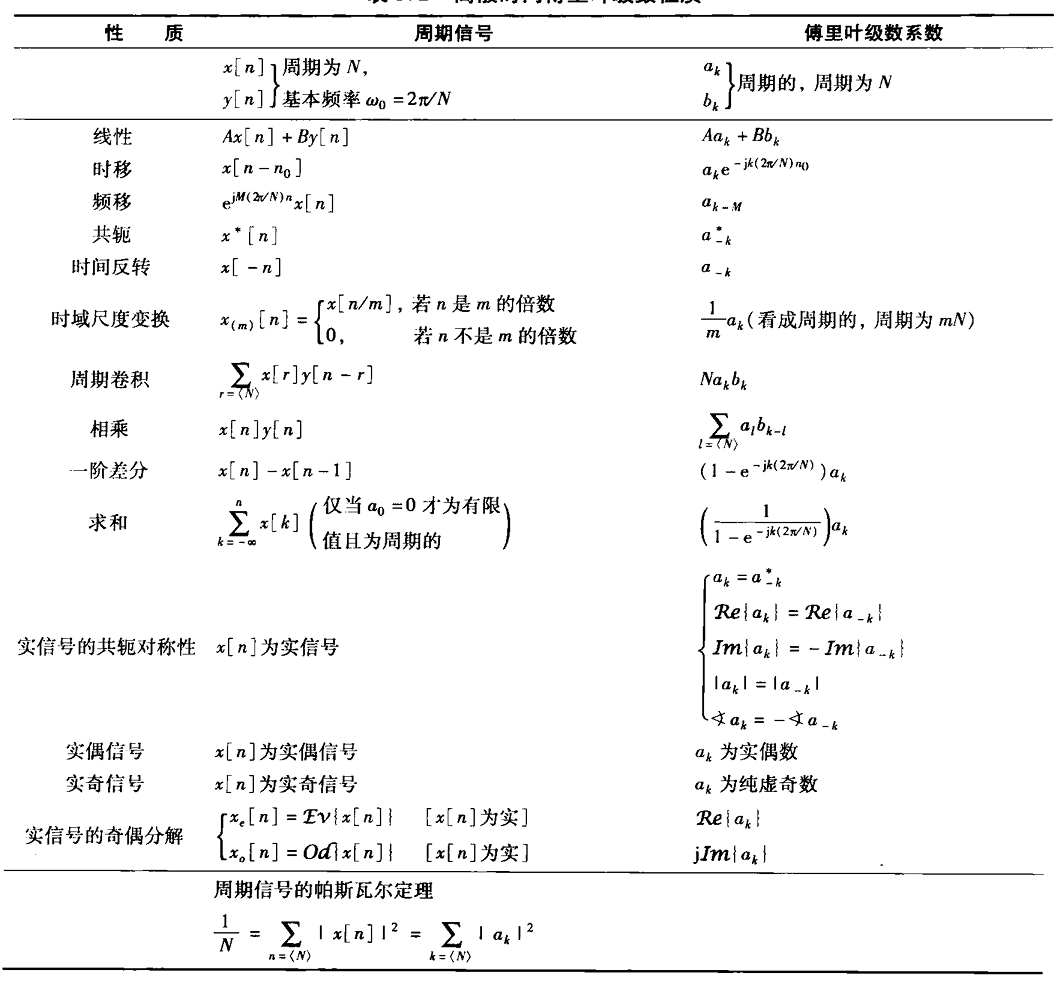 性 质 周期信号 傅里叶级数系数
x[n] } 周期为 N, a_k } 周期的, 周期为 N
y[n] } 基本频率 ω₀ = 2π/N b_k
线性 Ax[n] + By[n] Aa_k + Bb_k
时移 x[n − n₀] a_k e^{−jk(2π/N)n₀}
频移 e^{jM(2π/N)n} x[n] a_{k−M}
共轭 x*[n] a*_{−k}
时间反转 x[−n] a_{−k}
时域尺度变换 x_{(m)}[n] = { x[n/m], 若 n 是 m 的倍数 (1/m) a_k (看成周期的, 周期为 mN)
0, 若 n 不是 m 的倍数
周期卷积 ∑_{r=⟨N⟩} x[r]y[n − r] Na_k b_k
相乘 x[n]y[n] ∑_{l=⟨N⟩} a_l b_{k−l}
一阶差分 x[n] − x[n−1] (1 − e^{−jk(2π/N)}) a_k
求和 ∑_{k=−∞}^{n} x[k] (仅当 a₀ = 0 才为有限 (1/(1 − e^{−jk(2π/N)})) a_k
值且为周期的)
实信号的共轭对称性 x[n]为实信号 { a_k = a*_{−k}
Re{a_k} = Re{a_{−k}}
Im{a_k} = −Im{a_{−k}}
|a_k| = |a_{−k}|
∢a_k = −∢a_{−k}
实偶信号 x[n]为实偶信号 a_k 为实偶数
实奇信号 x[n]为实奇信号 a_k 为纯虚奇数
实信号的奇偶分解 { x_e[n] = Ev{x[n]} [x[n]为实] Re{a_k}
x_o[n] = Od{x[n]} [x[n]为实] jIm{a_k}
周期信号的帕斯瓦尔定理
1/N = ∑_{n=⟨N⟩} |x[n]|² = ∑_{k=⟨N⟩} |a_k|²